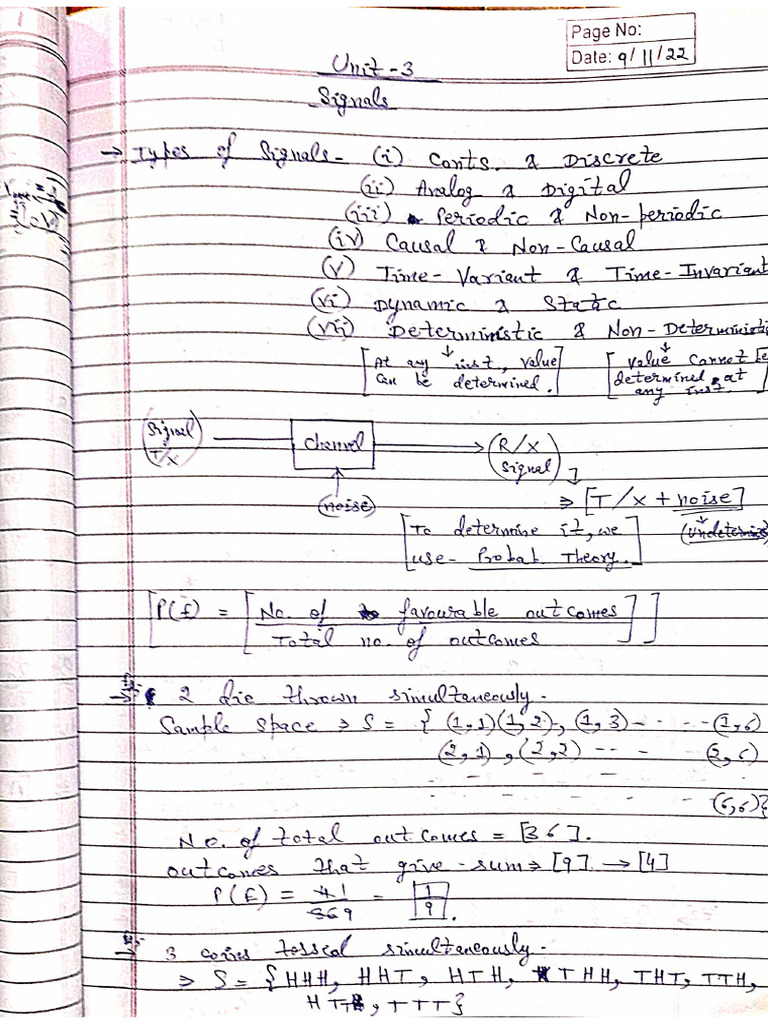 Page No:
Date: 9/11/22
Unit-3
Signals
→ Types of Signals - (i) Conts. & Discrete
(ii) Analog & Digital
(iii) Periodic & Non-periodic
(iv) Causal & Non-Causal
(v) Time-Variant & Time-Invariant
(vi) Dynamic & Static
(vii) Deterministic & Non-Deterministic
[At any inst, value [value cannot be
can be determined.] determined at
any inst.]
Signal
T/X
Channel
R/X
Signal
(noise)
⇒ [T/X + noise]
[To determine it, we
use - Probab. Theory.]
[P(E) = [No. of favourable outcomes
Total no. of outcomes]]
2 die thrown simultaneously -
Sample space ⇒ S = { (1,1)(1,2), (1,3) - - - - (1,6)
(2,1), (2,2) -- - (2,6)
(6,6)}
No. of total outcomes = [36].
outcomes that give - sum ⇒ [9] → [4]
P(E) = 41/369 = 1/9.
3 coins tossed simultaneously -
⇒ S = {HHH, HHT, HTH, THH, THT, TTH,
HTT, TTT}